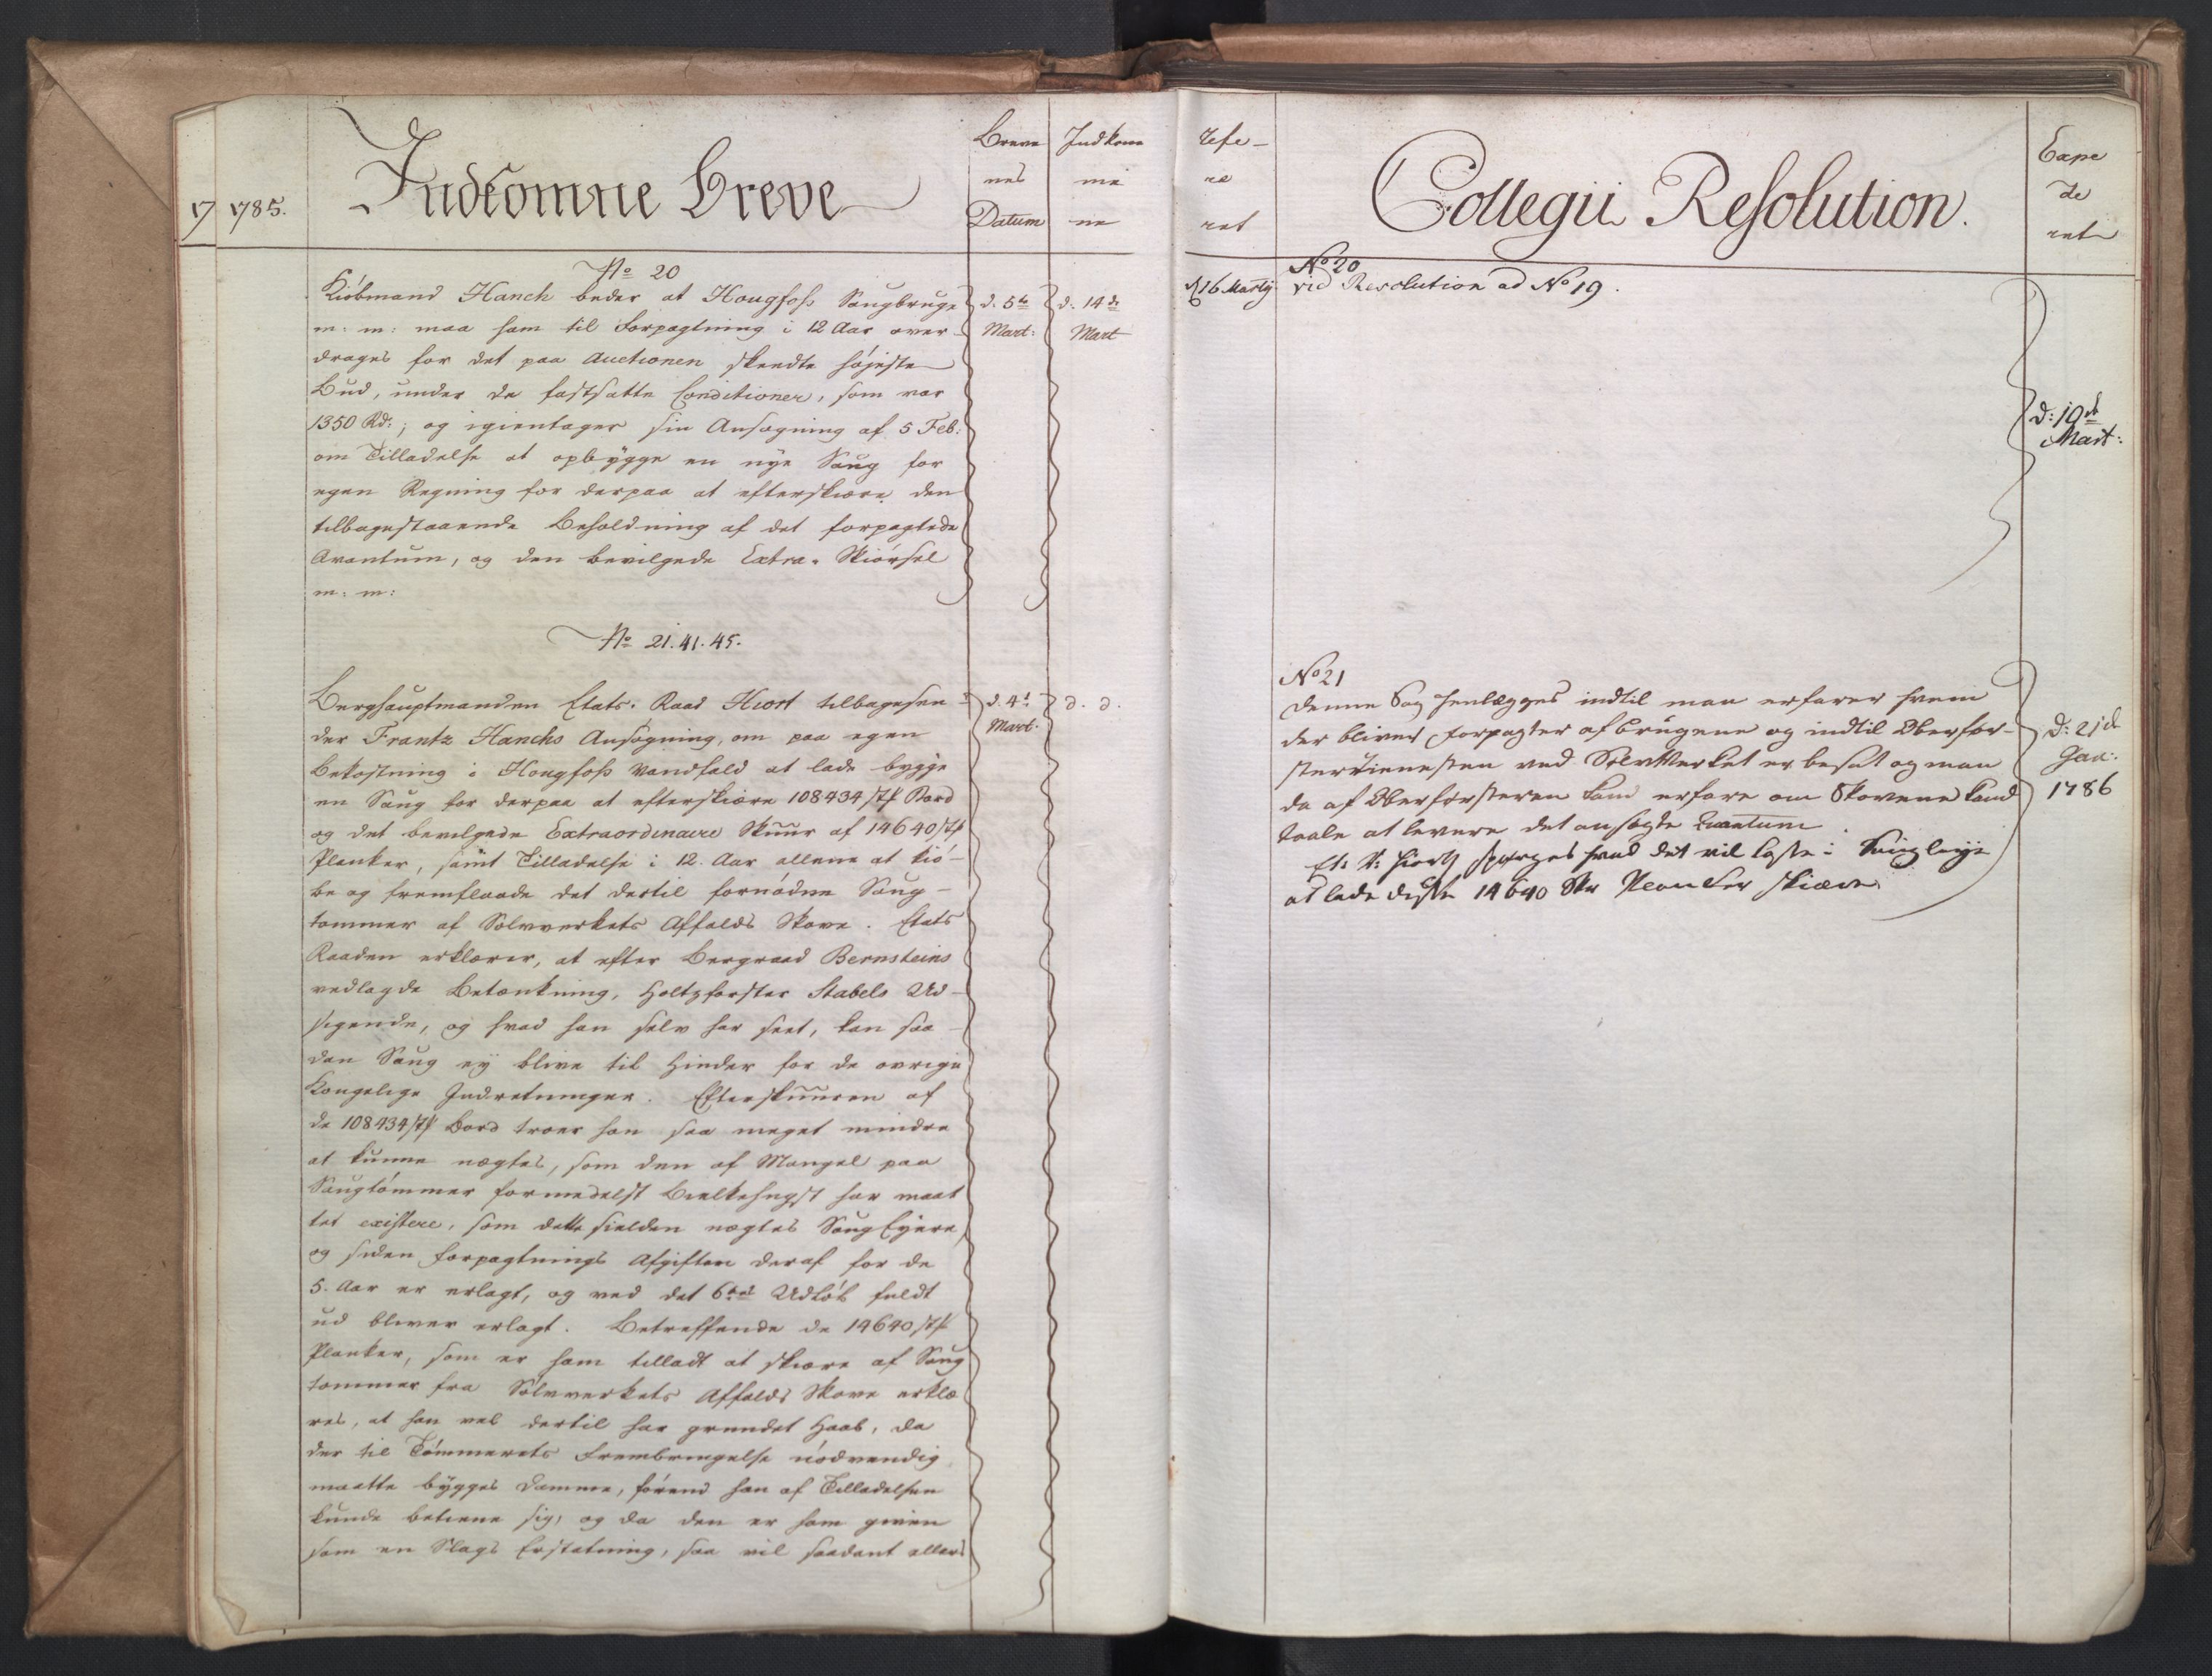 17
1785.
Indkomne Breve
Breve
nes
Datum
Indkom
me
ne
No 20
Kiøbmand Hanch beder at Hougfoss Saugbruge
m: m: maa ham til Forpagtning i 12 Aar over-
drages for det paa Auctionen skeedte højeste
Bud, under de fastsatte Conditioner, som var
1350 Rd:; og igientager sin Ansøgning af 5 Feb:
om Tilladelse at opbygge en nye Saug for
egen Regning for derpaa at efterskiære den
tilbagestaaende Beholdning af det forpagtede
Qvantum, og den bevilgede Extra-Skiørsel
m: m:
d. 5te
Mart:
d. 14de
Mart
No 21. 41. 45.
Berghauptmanden Etats-Raad Hiort tilbagesen-
der Frantz Hanchs Ansøgning, om paa egen
Bekostning i Hougfoss Vandfald at lade bygge
en Saug for derpaa at efterskiære 108434 stk Bord
og det bevilgede Extraordinaire Skuur af 14640 stk
Planker, samt Tilladelse i 12. Aar allene at kiø-
be og fremflaade det dertil fornødne Saug-
tømmer af Sølvverkets Affalds Skove. Etats
Raaden erklærer, at efter Bergraad Bernsteins
vedlagde Betænkning, Holtzførster Stabels Ud-
sigende, og hvad han selv har seet, kan saa-
dan Saug ey blive til Hinder for de øvrige
Kongelige Indretninger. Efterskuuren af
de 108434 stk Bord troer han saa meget mindre
at kunne nægtes, som den af Mangel paa
Saugtømmer formedelst Bielkehugst har maat
tet existere, som dette sielden nægtes Saug Eyere,
og siden Forpagtnings Afgiften deraf for de
5. Aar er erlagt, og ved det 6tes Udløb fuldt
ud bliver erlagt. Betreffende de 14640 stk
Planker, som er ham tilladt at skiære af Saug
tømmer fra Sølvverkets Affalds Skove erklæ
res, at han vel dertil har grundet Haab, da
der til Tømmerets Frembringelse nødvendig
maatte bygges Damme, førend han af Tilladelsen
kunde betiene sig, og da den er ham given
som en Slags Erstatning, saa vil saadant allers
d. 4de
Mart:
d. d.
refe-
re
ret
Collegii Resolution.
Expe
de
ret
d 16 Martij
No 20
vid Resolution ad No 19.
d: 19de
Mart:
No 21
Denne Sag henlægges indtil man erfarer hvem
der bliver Forpagter af Brugene og indtil Oberfor-
stertienesten ved Sølvverket er besat og man
da af Oberførsteren kand erfare om Skovene kand
taale at levere det ansøgte Qvantum.
Et: R: Hiort spørges hvad det vil koste i Saugleye
at lade disse 14640 Stk Planker skiære
d: 21de
Jan:
1786